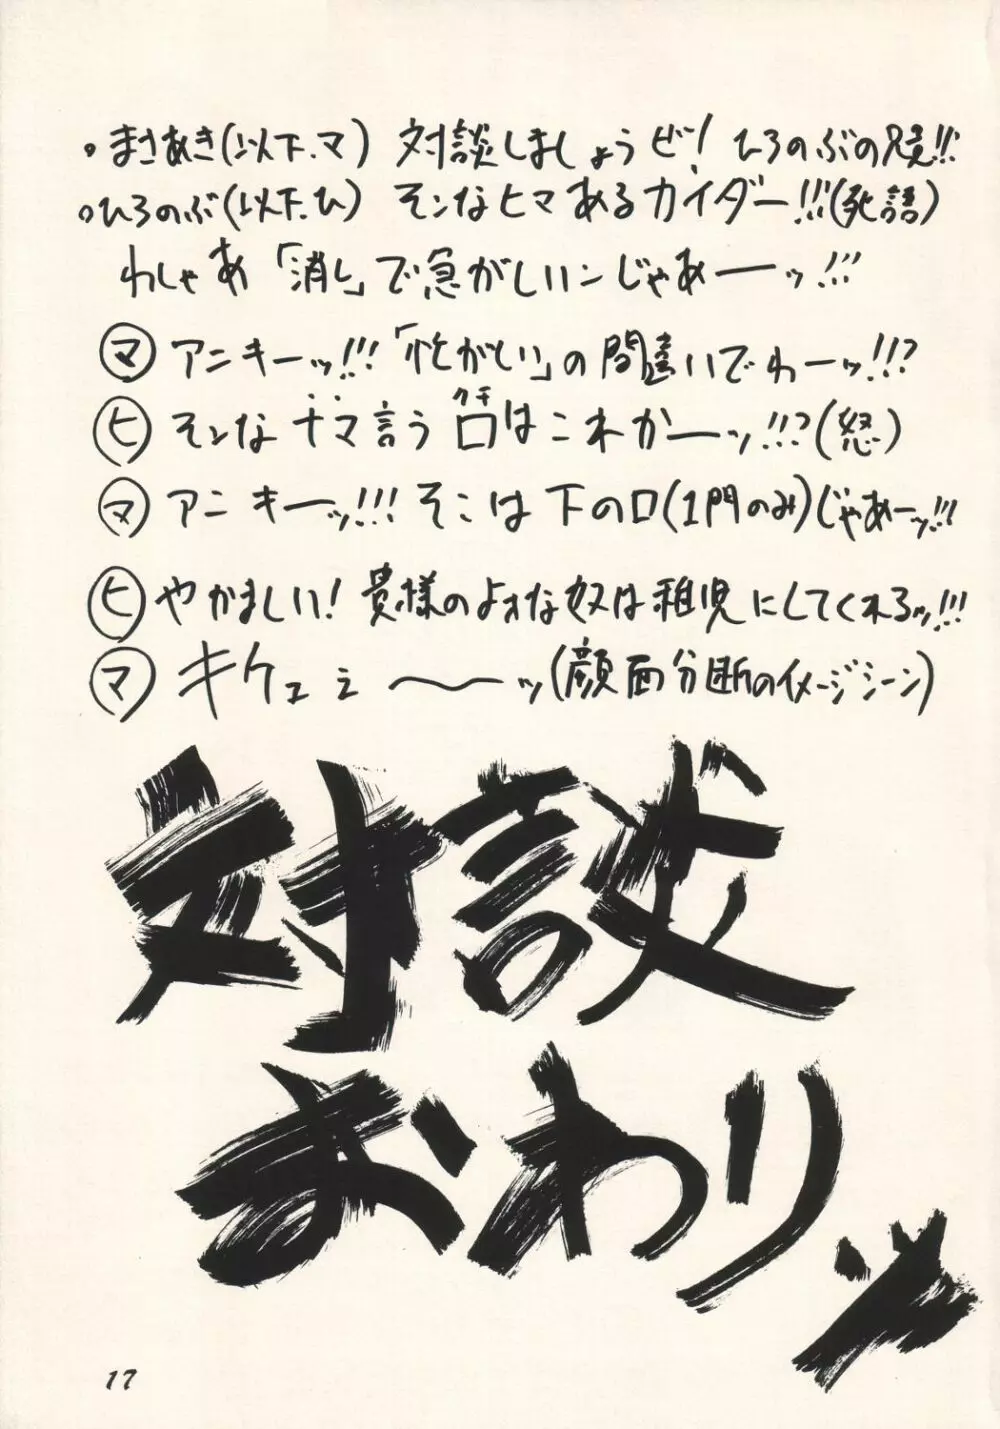 ○まさあき(以下.マ) 対談しましょうど! ひろのぶの兄!!!
○ひろのぶ(以下.ひ) そんなヒマあるカイダー!!!(死語)
わしゃあ「消し」で急がしいンじゃあーーッ!!!
㋮アニキーッ!!!「忙がしい」の間違いでわーッ!!?
㋪そんなナマ言う口(クチ)はこれかーーッ!!?(怒)
㋮アニキーッ!!!そこは下の口(1門のみ)じゃあーッ!!!
㋪やかましい! 貴様のよォな奴は稚児にしてくれるッ!!!
㋮キケェェ〜〜ッ(顔面分断のイメージシーン)
対談
おわりッ
17